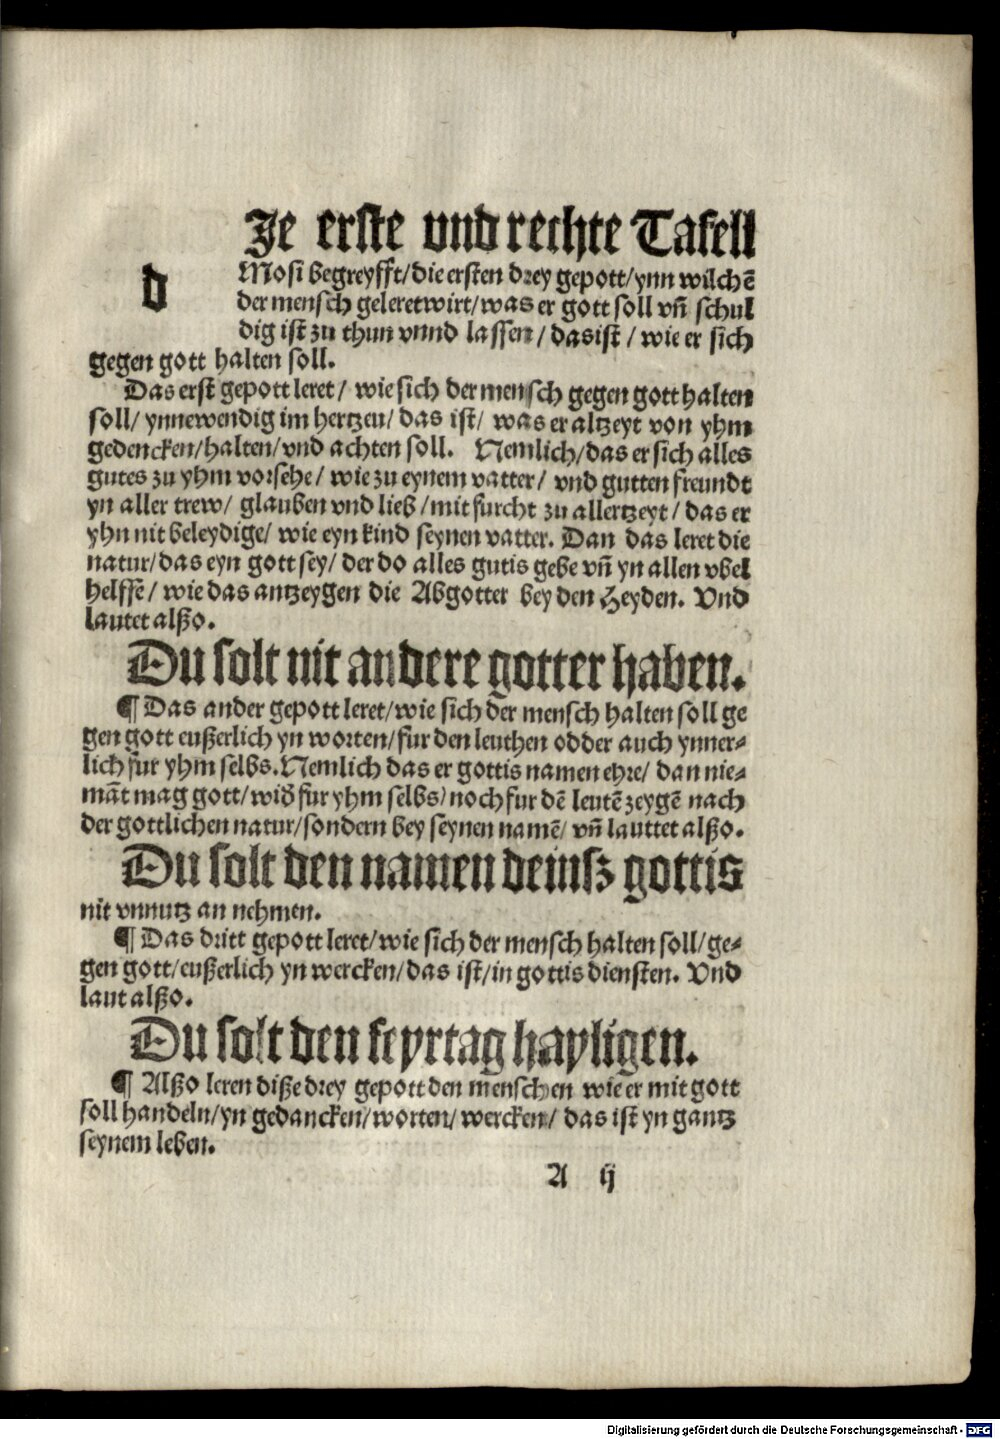 dJe erste vnd rechte Tafell
Mosi begreyfft/die ersten drey gepott/ynn wilchē
der mensch geleretwirt/was er gott soll vn̄ schul
dig ist zu thun vnnd lassen/dasist/wie er sich
gegen gott halten soll.
Das erst gepott leret/wie sich der mensch gegen gott halten
soll/ynnewendig im hertzen/das ist/was er altzeyt von yhm
gedencken/halten/vnd achten soll. Nemlich/das er sich alles
gutes zu yhm vorsehe/wie zu eynem vatter/vnd gutten freundt
yn aller trew/glauben vnd lieb/mit furcht zu allertzeyt/das er
yhn nit beleydige/wie eyn kind seynen vatter. Dan das leret die
natur/das eyn gott sey/der do alles gutis gebe vn̄ yn allen vbel
helffe/wie das antzeygen die Abgotter bey den Heyden. Vnd
lautet alßo.
Du solt nit andere gotter haben.
¶ Das ander gepott leret/wie sich der mensch halten soll ge
gen gott eußerlich yn worten/fur den leuthen odder auch ynner⸗
lich fur yhm selbs. Nemlich das er gottis namen ehre/dan nie⸗
mā̄t mag gott/wid̄ fur yhm selbs/noch fur dē leutē zeygē nach
der gottlichen natur/sondern bey seynen namē/vn̄ lauttet alßo.
Du solt den namen deinsz gottis
nit vnnutz an nehmen.
¶ Das dritt gepott leret/wie sich der mensch halten soll/ge⸗
gen gott/eußerlich yn wercken/das ist/in gottis diensten. Vnd
laut alßo.
Du solt den feyrtag hayligen.
¶ Alßo leren diße drey gepott den menschen wie er mit gott
soll handeln/yn gedancken/worten/wercken/das ist yn gantz
seynem leben.
A ij
Digitalisierung gefördert durch die Deutsche Forschungsgemeinschaft - DFG